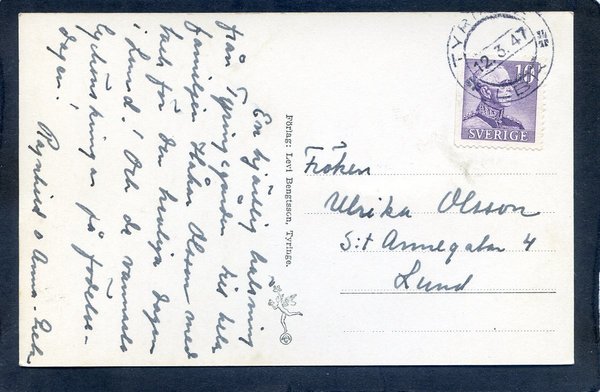 En hjärtlig hälsning
från Tyringegården till hela
familjen Håkan Olsson med
tack för den härliga dagen
i Lund! Och de varmaste
lyckönskningar på födelse-
dagen!
Ragnhild o Anna-
Förlag: Levi Bengtsson, Tyringe.
TYRINGE
12.3.47
10
SVERIGE
Fröken
Ulrika Olsson
S:t Annegatan 4
Lund